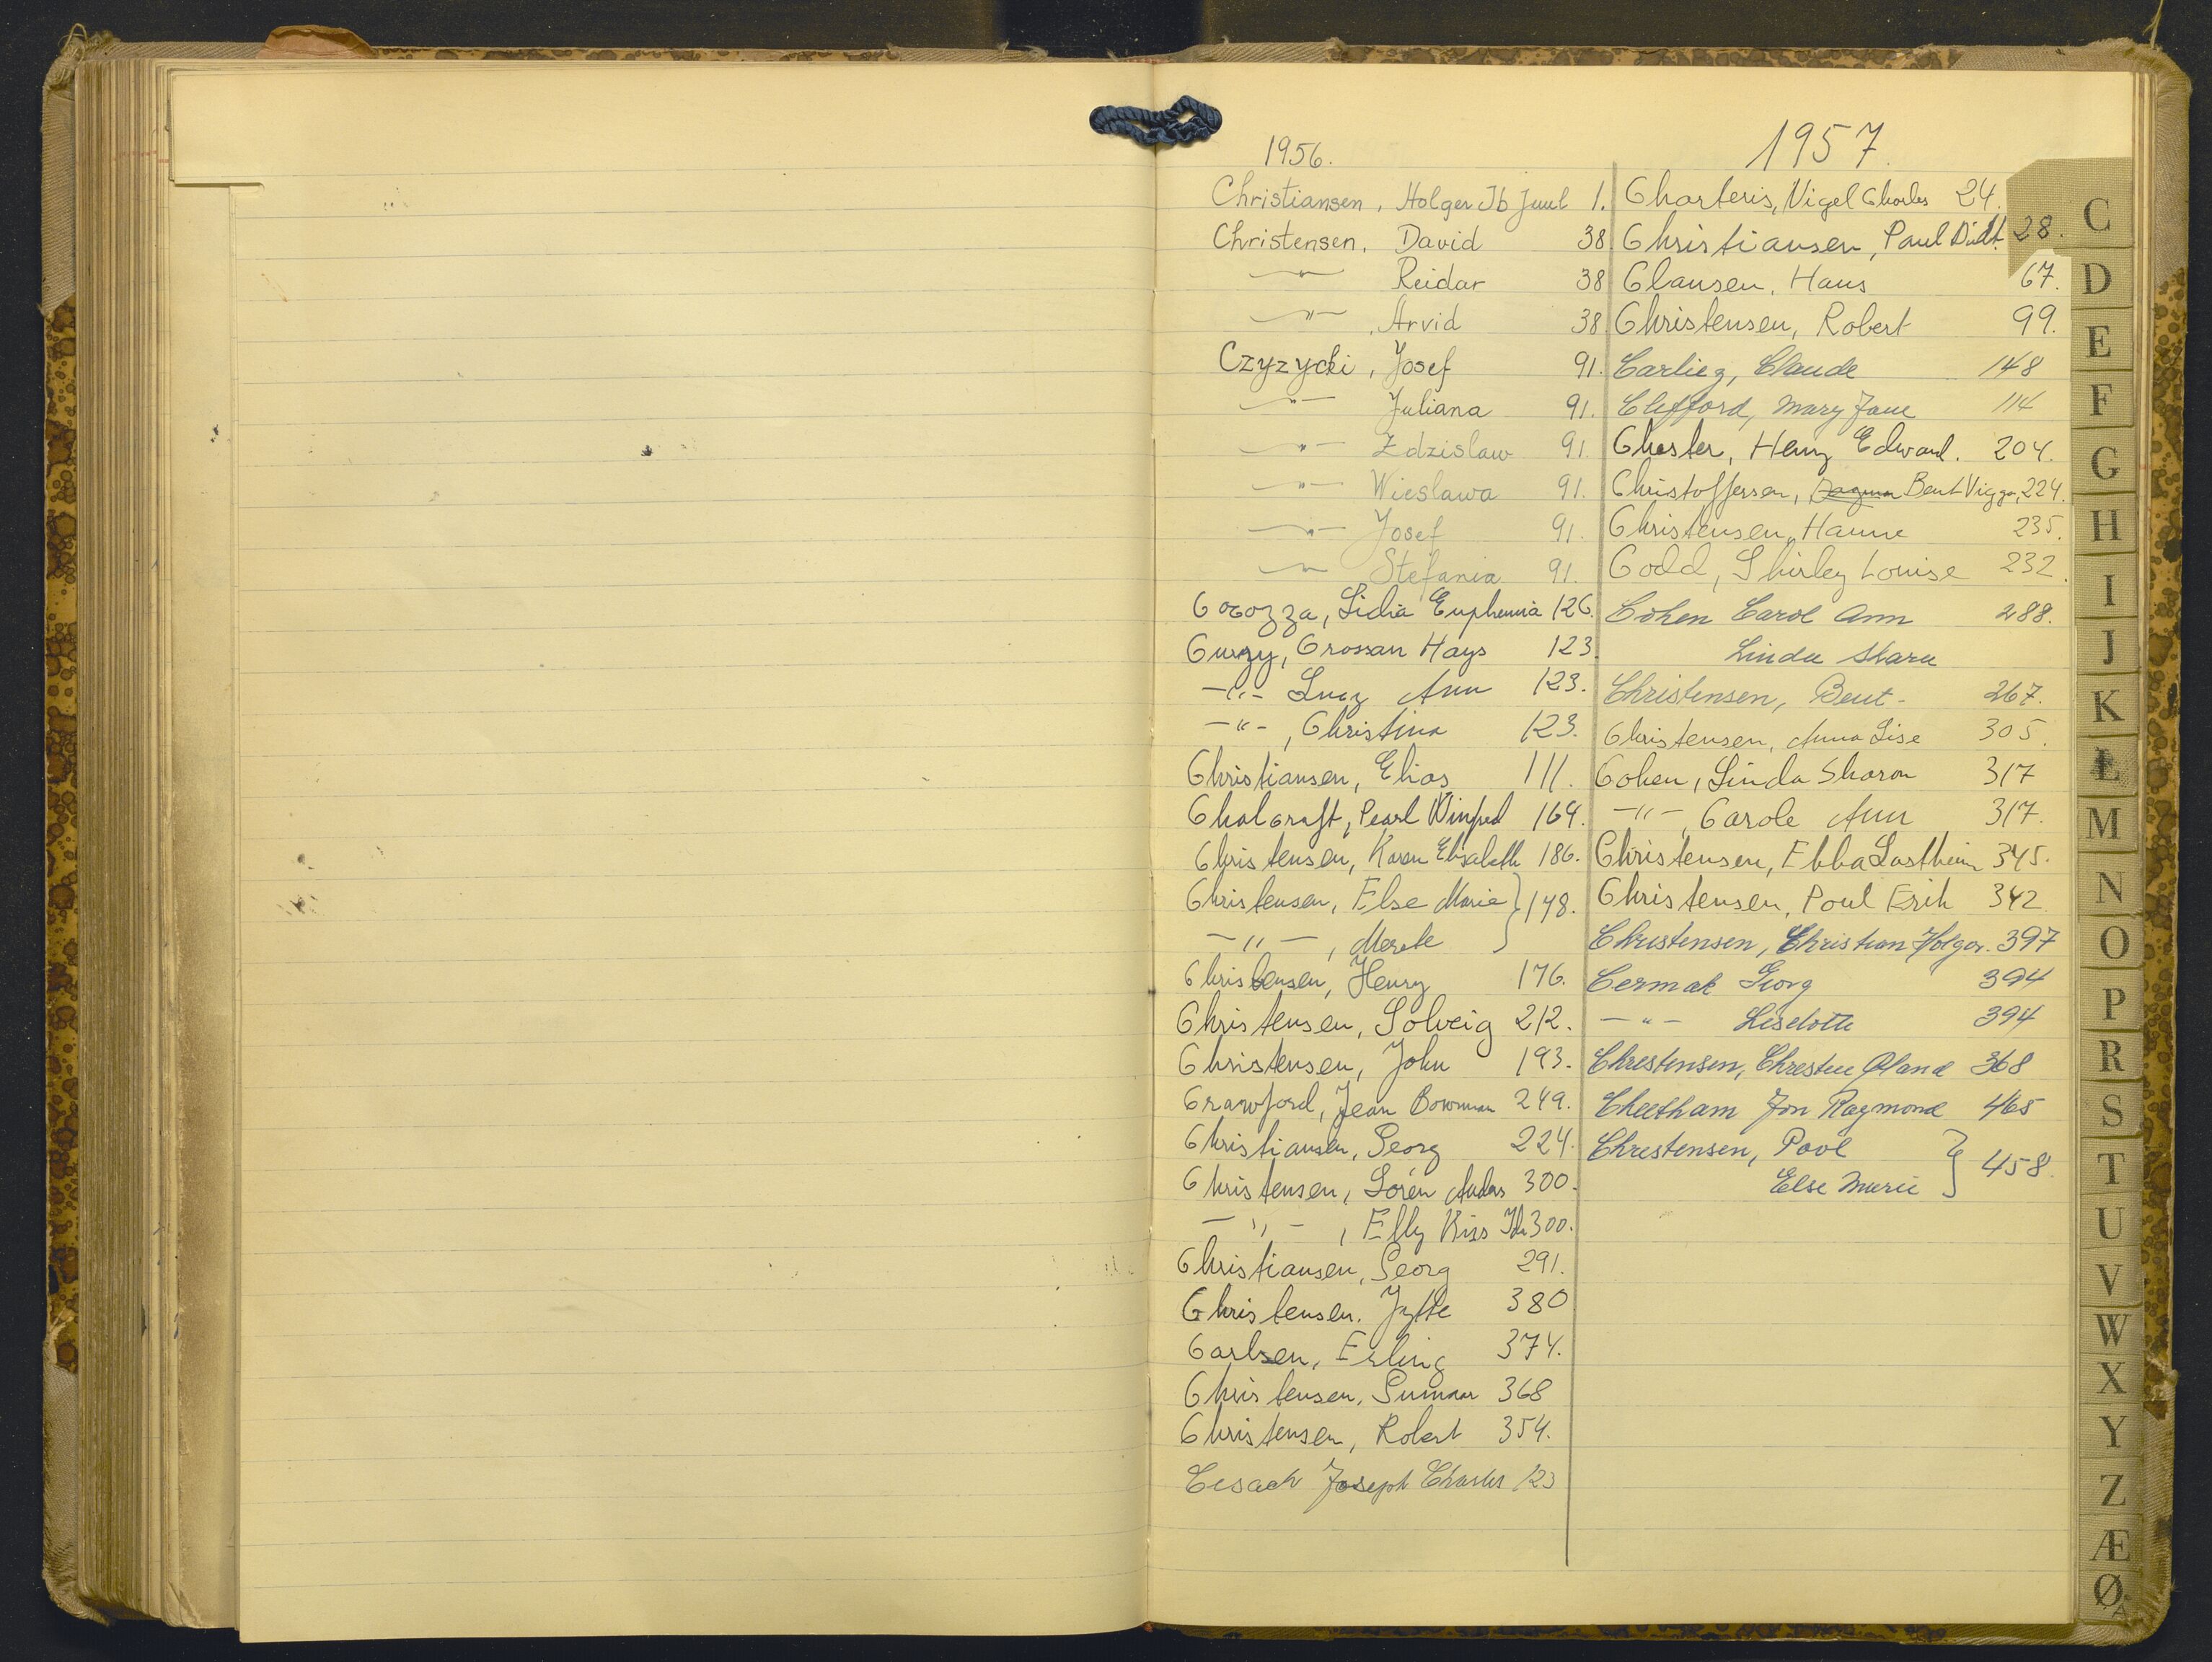 1956.
Christiansen, Holger Ib Juul 1.
Christensen, David 38
—"— Reidar 38
—"— , Arvid 38
Czyzycki, Josef 91.
—"— Juliana 91.
—"— Zdzislaw 91.
—"— Wieslawa 91.
—"— Josef 91.
—"— Stefania 91.
Cocozza, Lidia Euphemia 126.
Curzy, Crossan Hays 123.
—"— Lucy Ann 123.
—"— , Christina 123.
Christiansen, Elias 111.
Chalcraft, Pearl Winifred 164.
Christensen, Karen Elisabeth 186.
Christensen, Else Marie } 148.
—"— , Merete
Christensen, Henry 176.
Christensen, Solveig 212.
Christensen, John 193.
Crawford, Jean Bowman 249.
Christiansen, Georg 224.
Christensen, Sören Anders 300.
—"— , Elly Kiss 300.
Christiansen, Georg 291.
Christensen, Jytte 380
Carlsen, Erling 374.
Christensen, Gunnar 368
Christensen, Robert 354.
Cesach Joseph Charles 123
1957.
Charteris, Nigel Charles 24.
Christiansen, Paul 28.
Clausen, Hans 67.
Christensen, Robert 99.
Carlieg, Claude 148
Clifford, Mary Jane 114
Chester, Henry Edward. 204.
Christoffersen, Dagmar Bent Viggo, 224.
Christensen, Hanne 235.
Codd, Shirley Louise 232.
Cohen Carol Ann 288.
Linda Shara
Christensen, Bent - 267.
Christensen, Anna Lise 305.
Cohen, Linda Sharon 317
—"— , Carole Ann 317.
Christensen, Ebba Lastheim 345.
Christensen, Poul Erik 342
Christensen, Christian Holger. 397
Cermak Georg 394
—"— Liselotte 394
Christensen, Christen Øland 368
Cheetham Jon Raymond 465
Christensen, Povl } 458.
Else Marie
C
D
E
F
G
H
I
J
K
L
M
N
O
P
R
S
T
U
V
W
X
Y
Z
Æ
Ø
Å